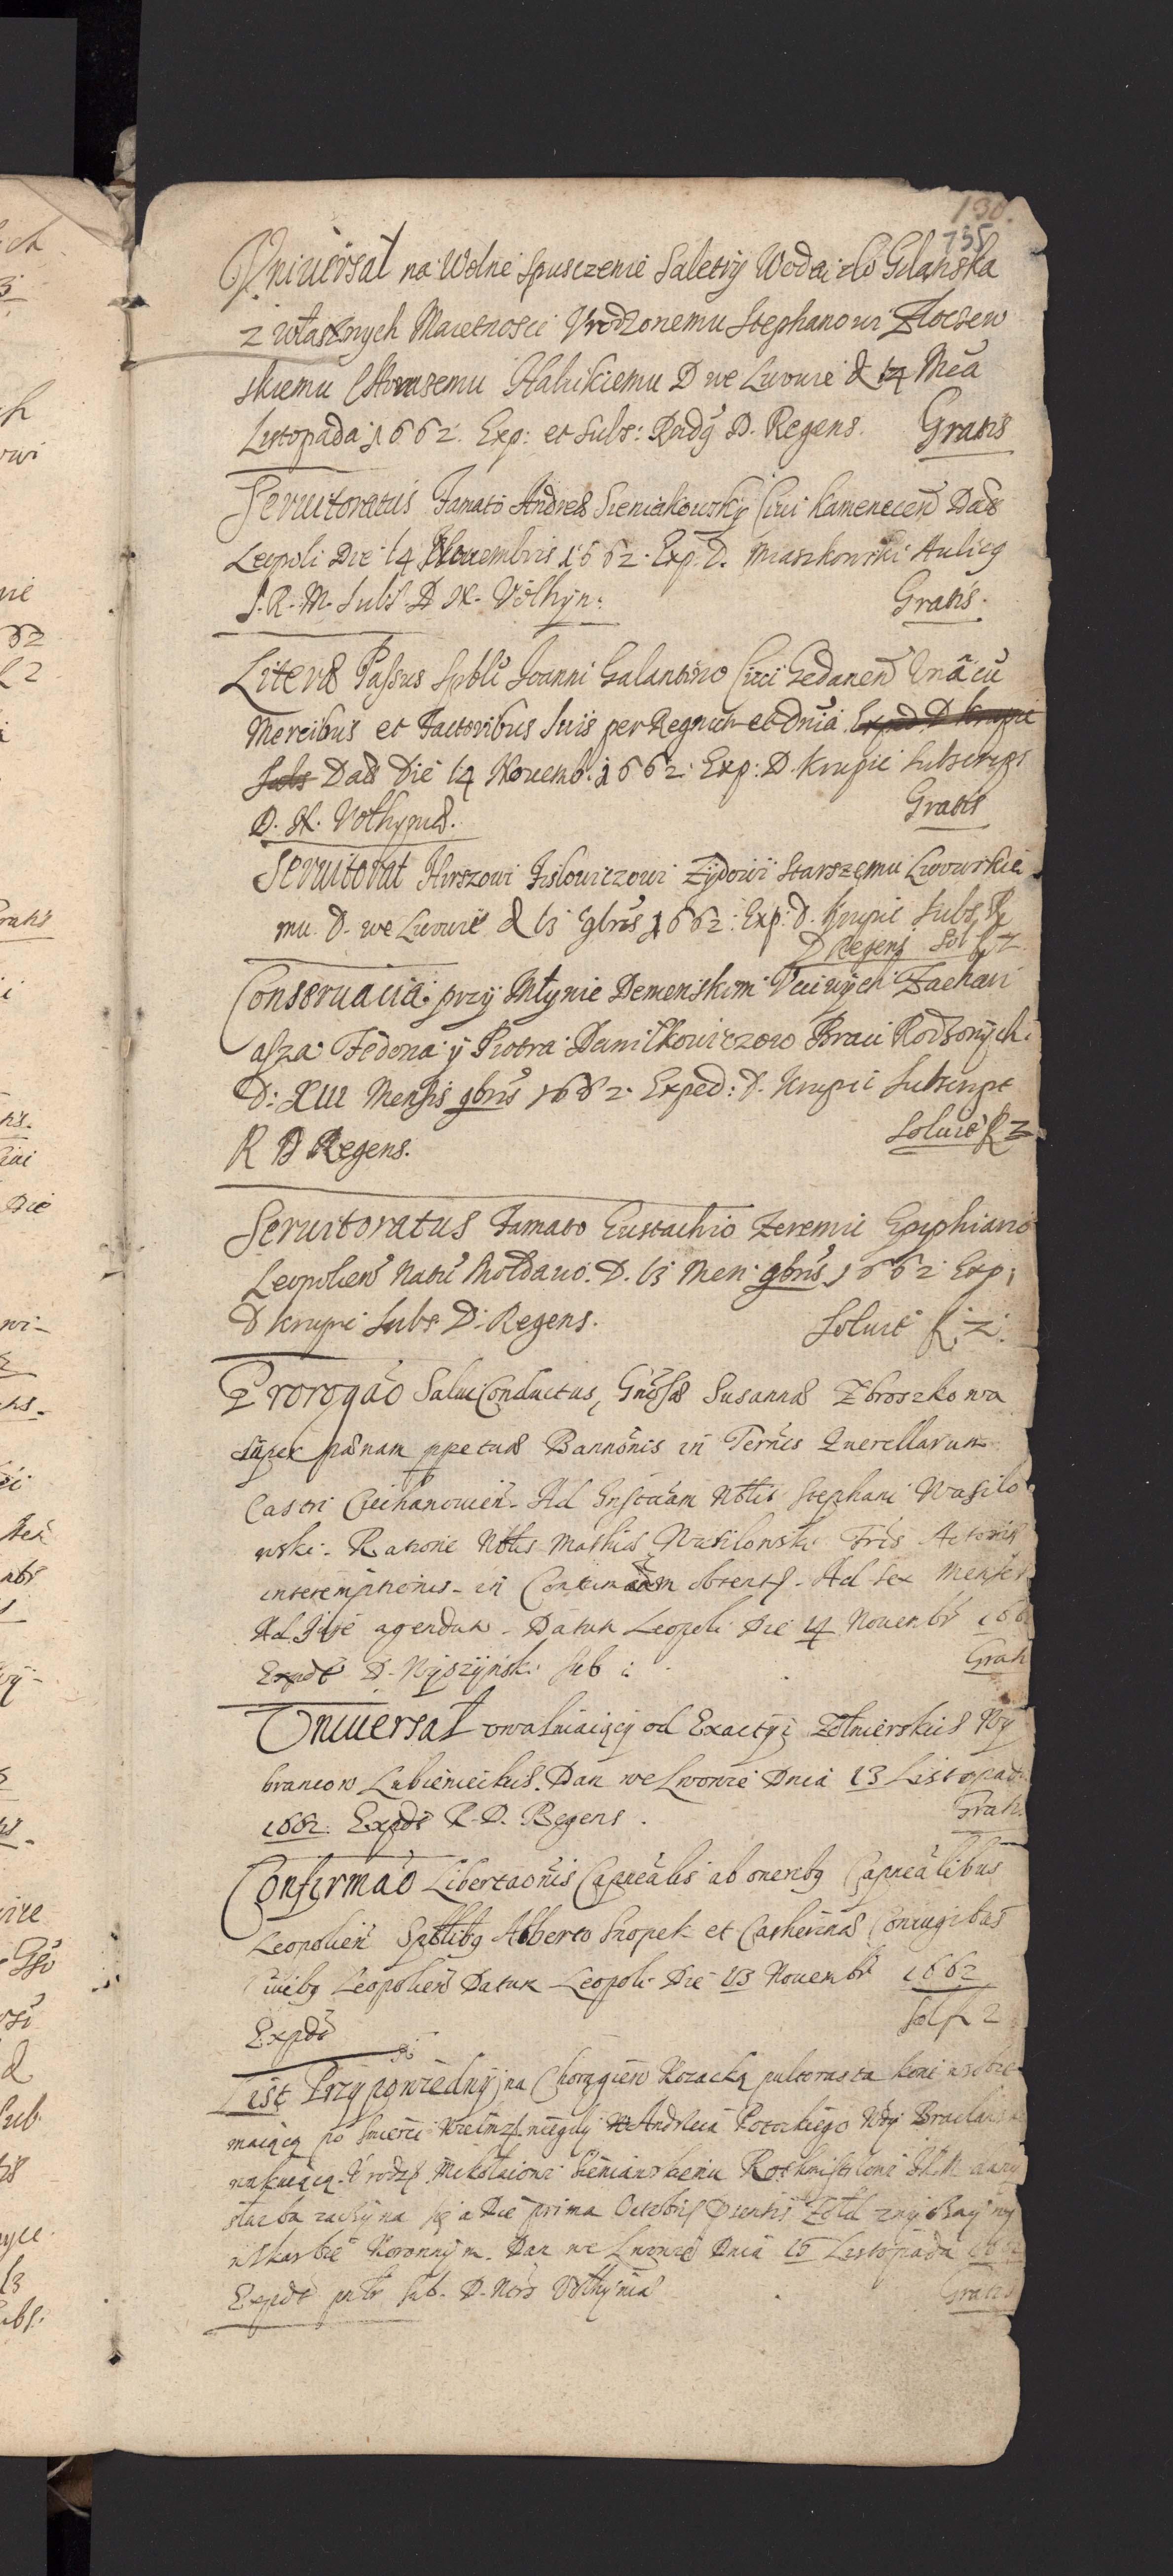 130.
135
Uniuersał na Wolne spusczenie Saletry Wodą do Gdańska
z własznych Maiętnosci Vrodzonemu Stephanowi Złoczew
skiemu Halickiemu D we Lwowie d 14 Mca
Listopada 1662. Exp: et Subs: Rndg D. Regens. Gratis
Seruitoratus Famato Andreæ Sieniakowsky Ciui Kamenecen Dad
Leopoli Die 14 Nouembris 1662. Exp. D. Miaszkowski Aulicg
S. R. M. Subs D N. Volhyn: Gratis.
Literæ Passus Spbli Joanni Galantino Ciui Gedanen Unacu
Mercibus et Factoribus suis per Regnum et dnia Exped D Krupic
Subs Dad Die 14 Nouemb. 1662. Exp: D. Krupic Subscrips
D. N. Volhyniæ. Gratis
Seruitorat Hirszowi Zydowi Starszemu Lwowskie
mu. D. we Lwowie d 13 9bris 1662. Exp: D. Krupic Subs R
D Regens Sol f 2.
Conseruacia przy Młynie Demenskim Vcciwych Zachari
asza Fedora y Piotra Damiłkowiczow Braci Rodzonych.
D: XIII Mensis 9bris 1662. Exped: D. Krupic Subscript
R D Regens. Soluit f 2
Seruitoratus Famato Eustachio Zeremie Epiphiano
Leopolien Natu Moldauo. D. 13 Men 9bris 1662 Exp:
D Krupic Subs D. Regens. Soluit f. 2.
Prorogao SaluiConductus, Gnosæ Susannæ Zbroszkowa
super pænam ppetuæ Bannonis in Ternis Querellarum
Castri Ciechanouien. Ad Instaam Nblis Stephani Wasilo
wski. Ratione Nblis Mathiæ Wasilowski Fris Actoris
interemptionis in Contumam obtentS. Ad Sex Menses
Ad Jure agendum. Datum Leopoli Die 14 Nouembr 166
Expdt D. Wyszyński Sub: Grati
Uniuersał vwalniaiący od Exactyi Zołnierskiey Wy
brancow Lubienieckich. Dan we Lwowie Dnia 13 Listopada
1662. Expdt R. D. Regens. Grati
Confirmao Libertaonis Capnealis ab oneribg Capnealibus
Leopolien Spblibg Alberto Snopek et Catherinæ Coniugibus
Ciuibg Leopolien Datum Leopoli Die 13 Nouembr 1662
Expdt Sol f 2
List Przypowiedny na Chorągiew Kozacką pultorasta koni w sobie
maiącą po smierci niegdy Andrzeia Potockiego Wdy Bracławsk
wakuiącą. Vrodz Mikołaiowi Rothmistrzowi dany
słuzba zaczyna się a Die prima Octobris Pntis
w Skarbie Koronnym. Dan we Lwowie Dnia 15 Listopada
Expdt Sub. D. Nots Volhyniæ Gratis